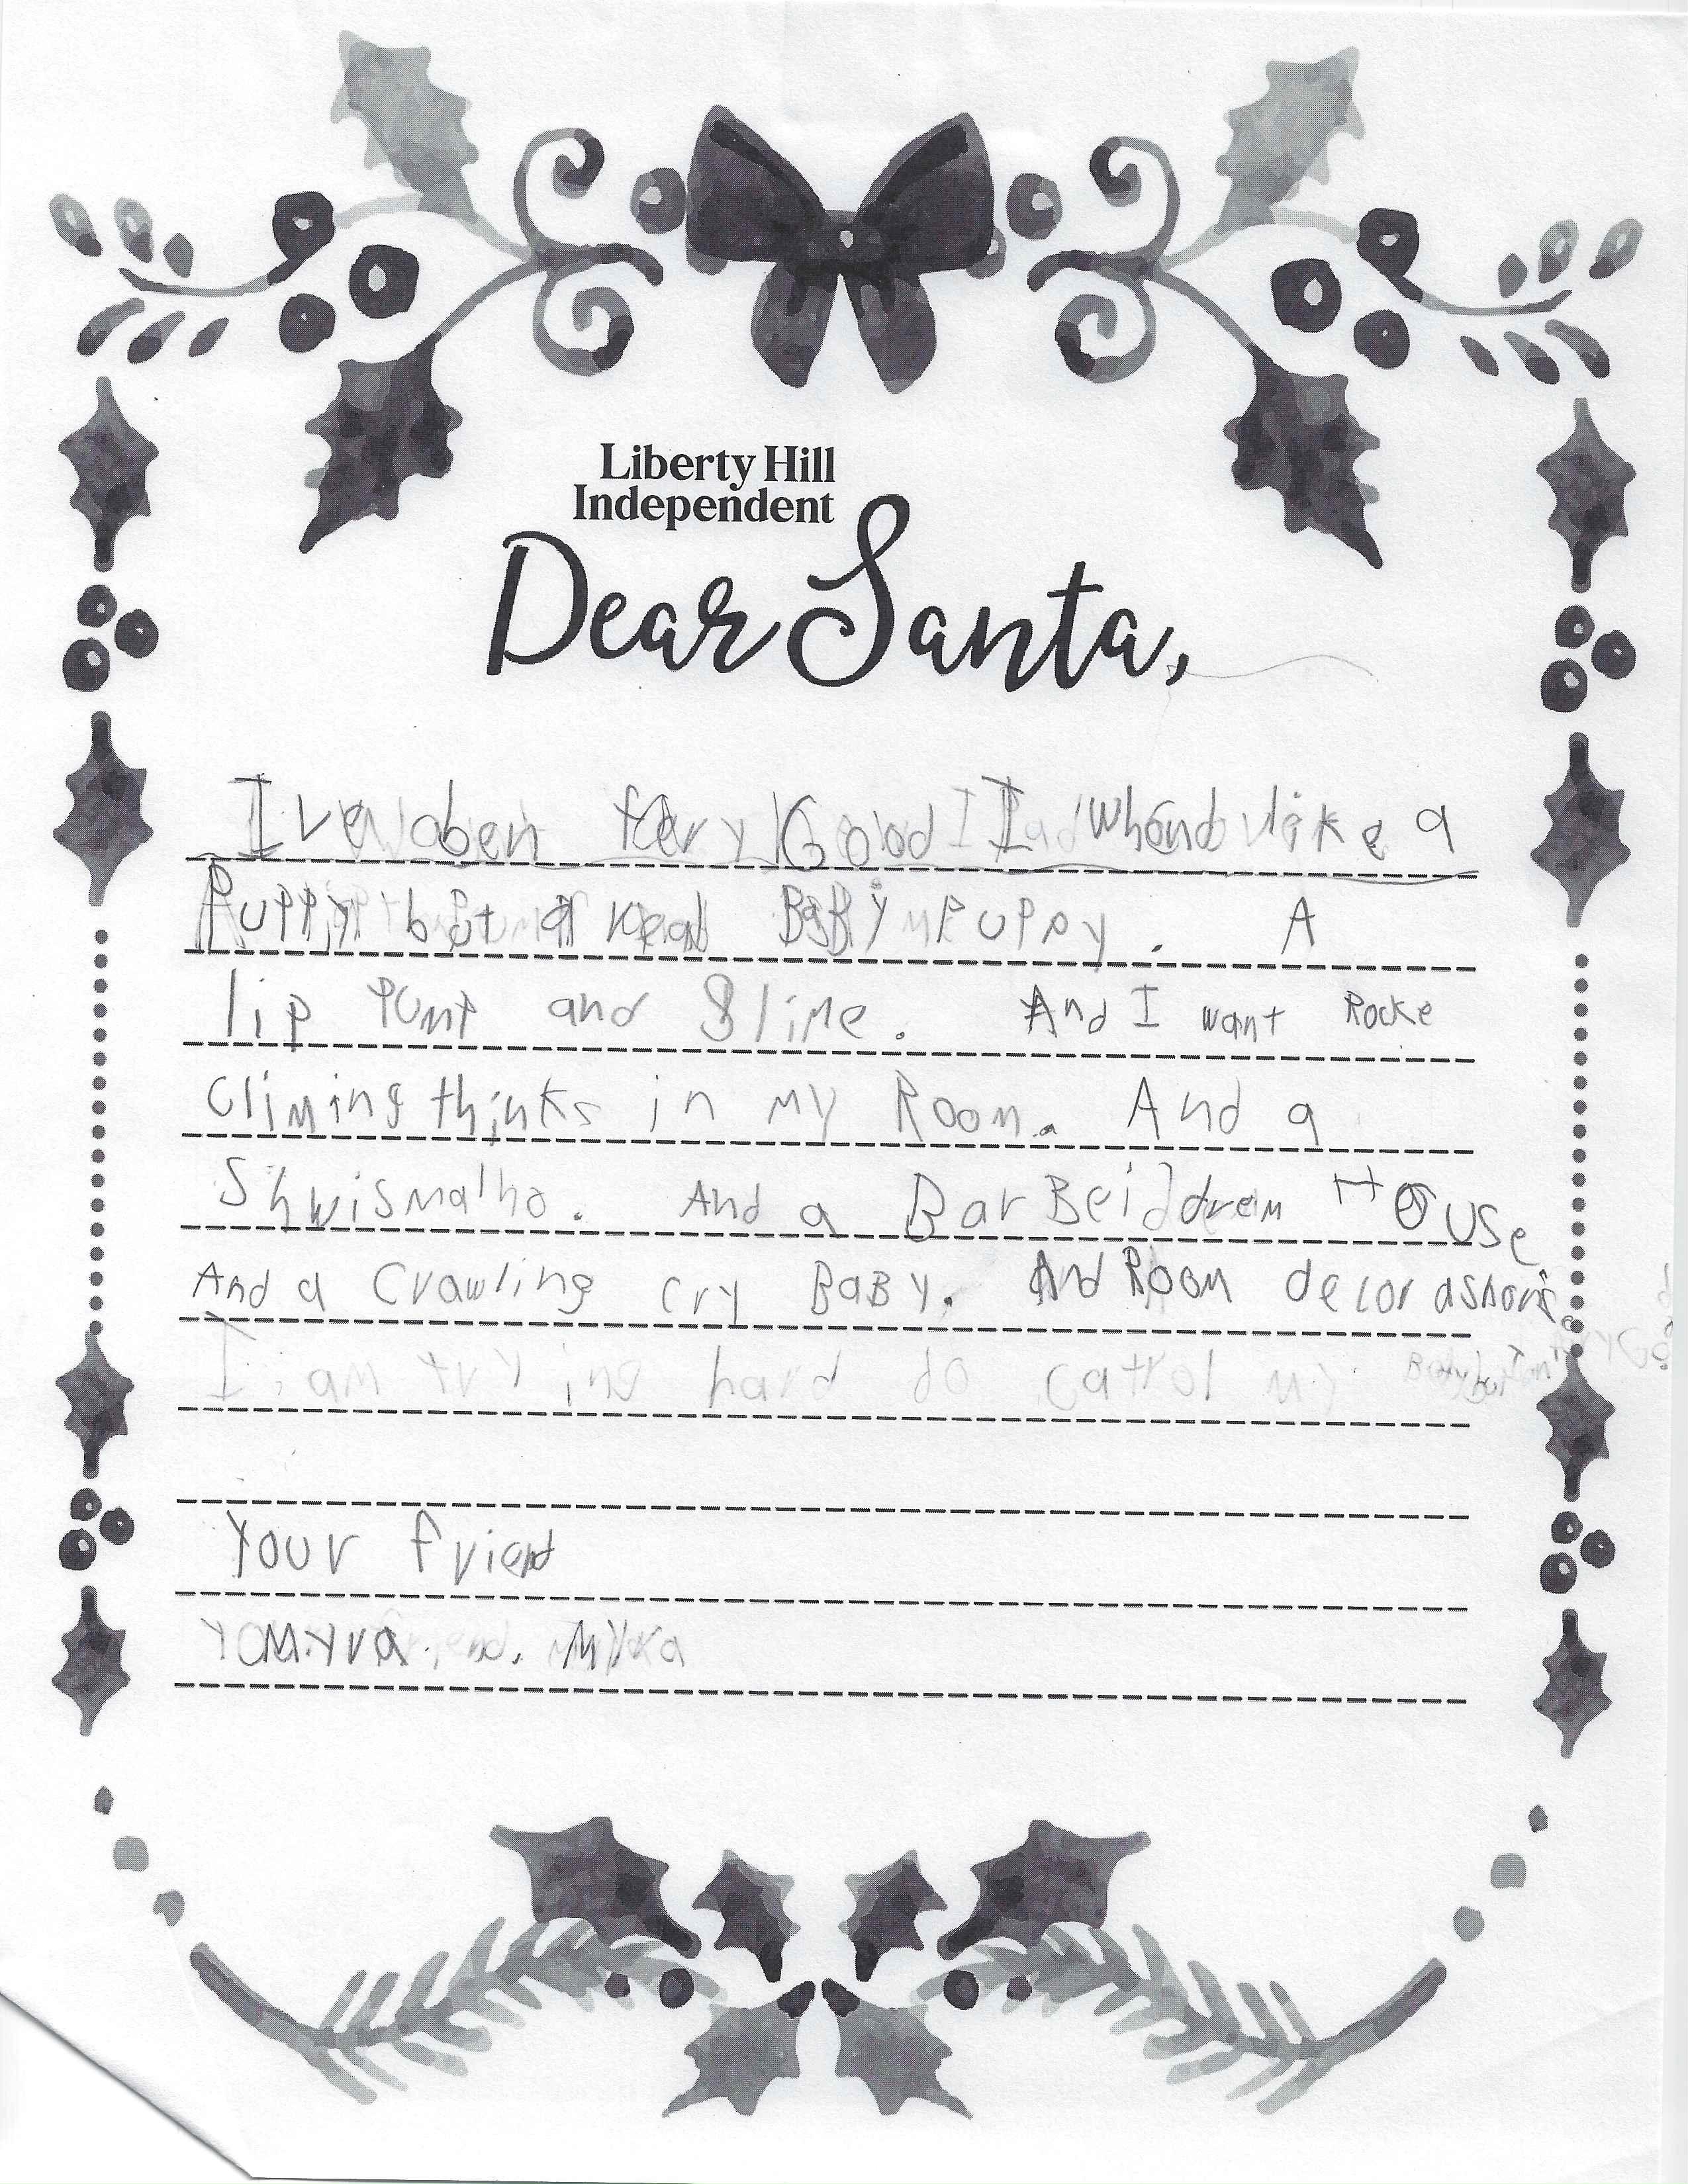 Liberty Hill
Independent
Dear Santa,
I ve ben fery Good I whond like a
Puppy but a real BaBy Puppy. A
lip Pump and Slime. And I want Rocke
Climing thinks in my Room. And a
Shwismalho. And a BarBei drem House
And a Crawling cry BaBy. And Room decorashons.
I am trying hard do catrol my
Your friend
Myra